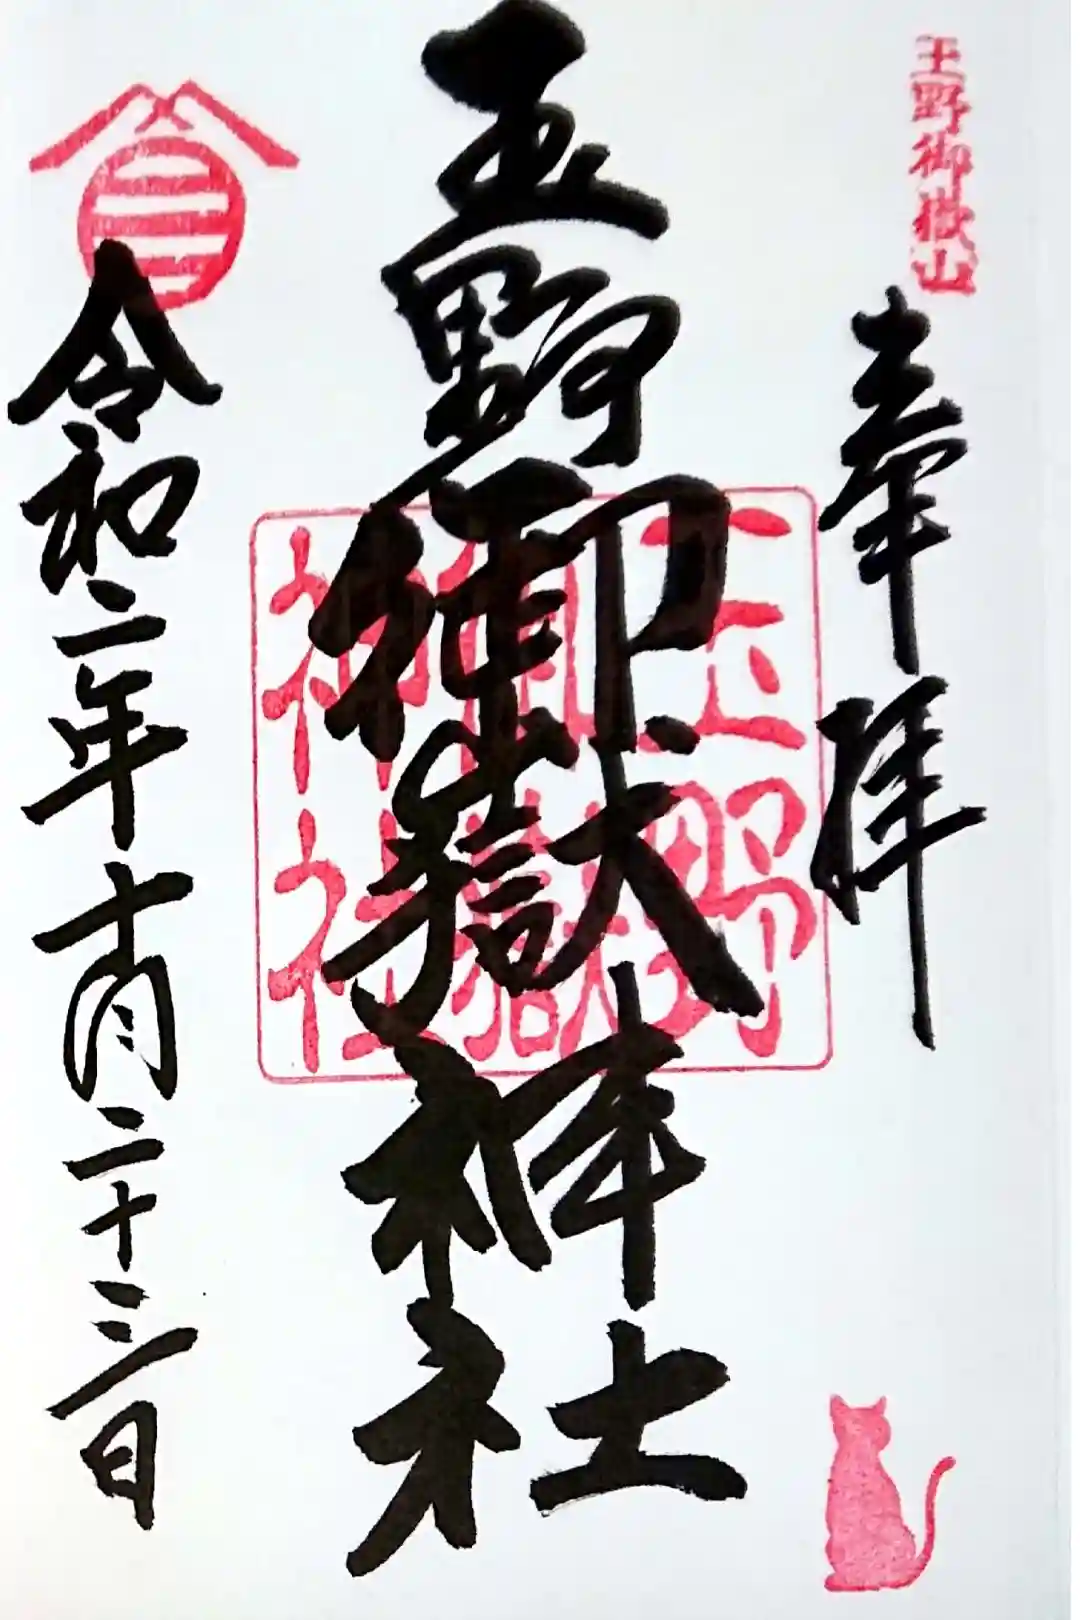 玉野御嶽山
奉拝
玉野御嶽神社
玉野
御嶽
神社
令和二年十月二十三日